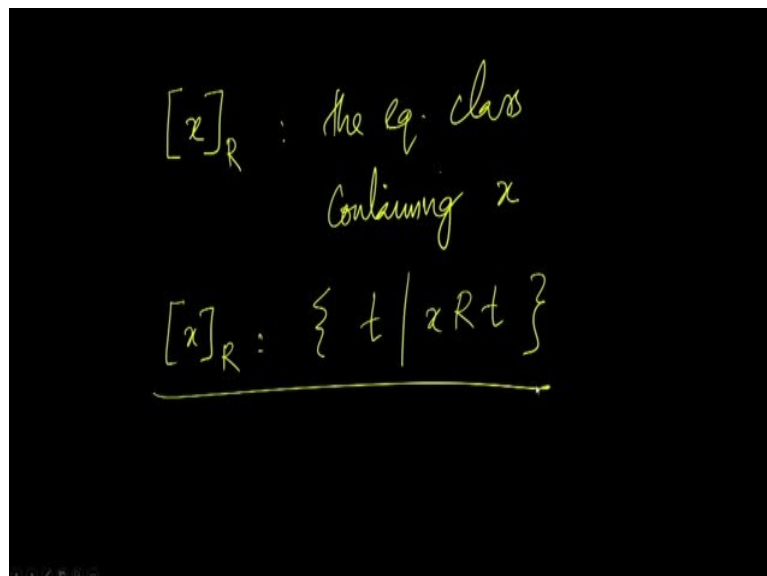 [x]_R : the eq. class
containing x
[x]_R : { t | x R t }